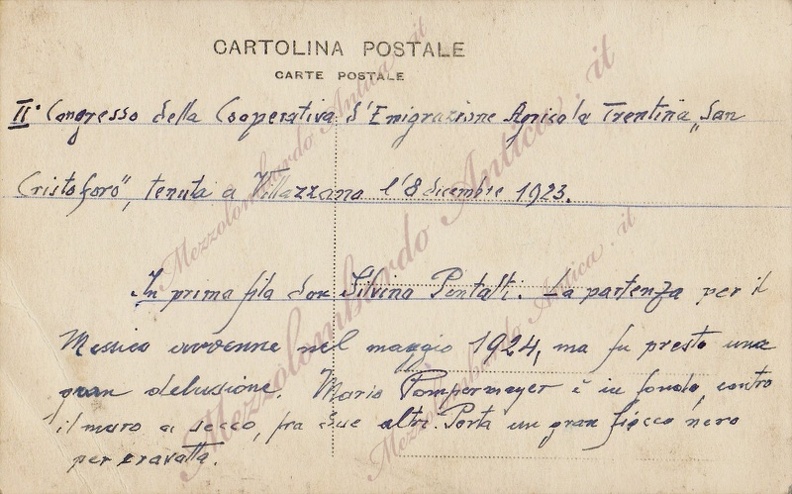 CARTOLINA POSTALE
CARTE POSTALE
II° Congresso della Cooperativa d'Emigrazione Agricola Trentina „San
Cristoforo", tenuta a Villazzano l'8 dicembre 1923.
In prima fila don Silvino Pentalti. La partenza per il
Messico avvenne nel maggio 1924, ma fu presto una
gran delusione. Mario Pompermayer è in fondo, contro
il muro a secco, fra due altri. Porta un gran fiocco nero
per cravatta.
Mezzolombardo Antica.it
Mezzolombardo Antica.it
Mezzolombardo Antica.it